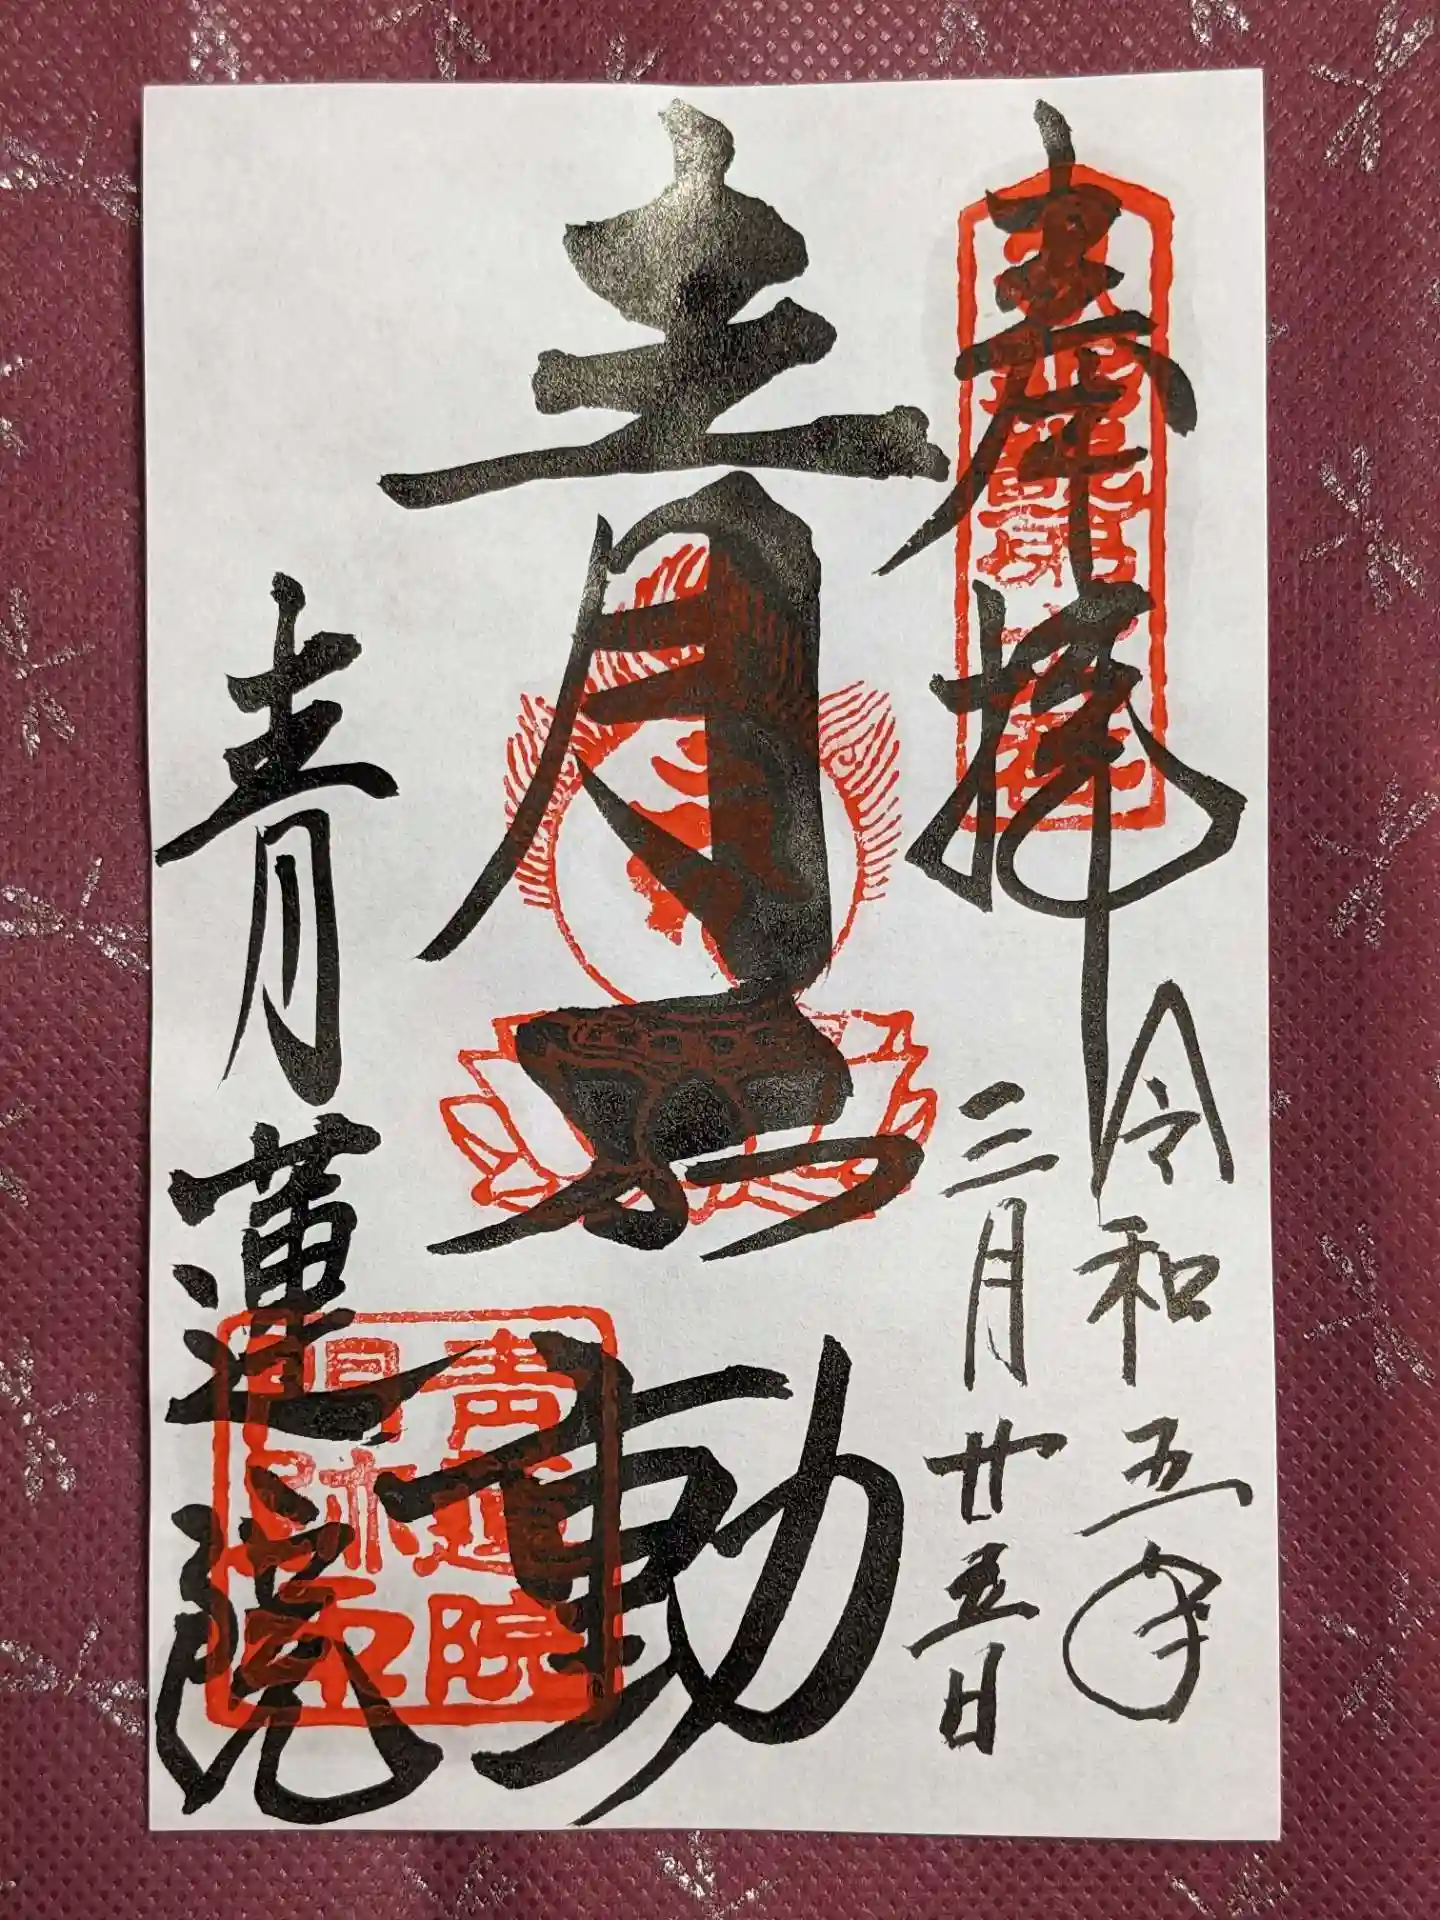 奉拝
令和五年
三月廿五日
青不動
青蓮院
青蓮院